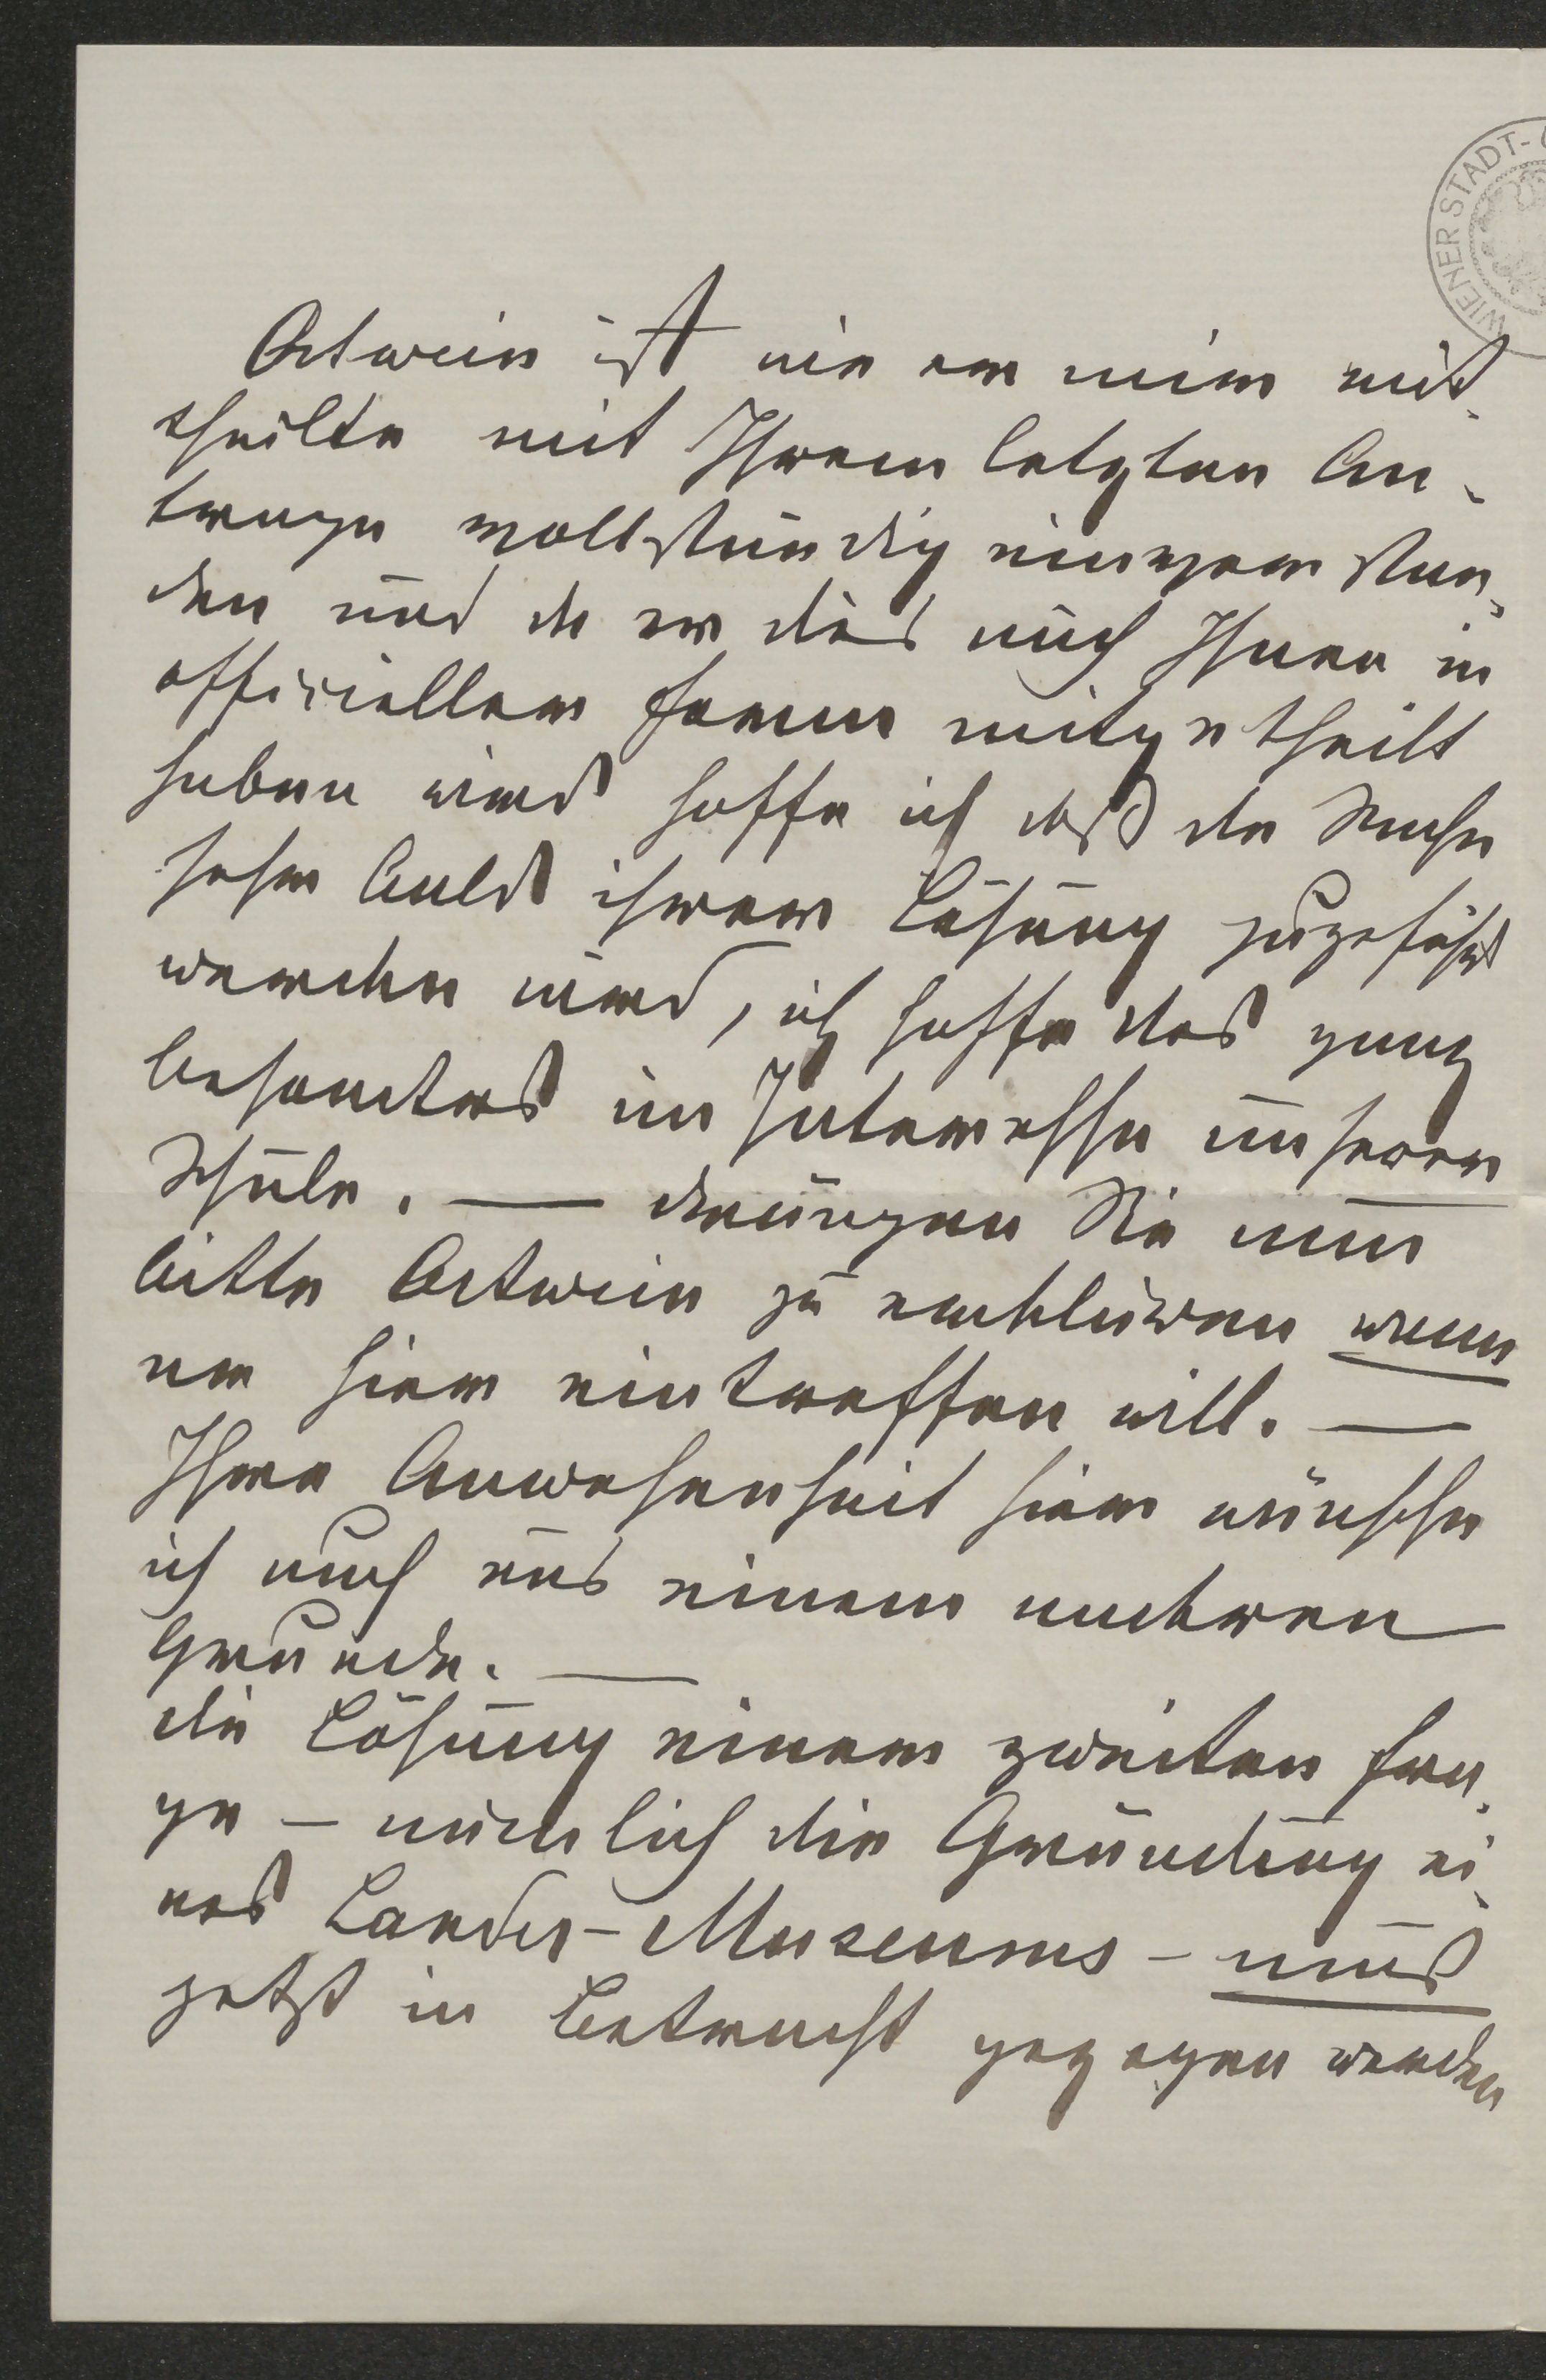 WIENER STADT-
Ortwein ist wie er mir mit-
theilte mit Ihrem letzten An-
trage vollständig einverstan-
den und da er dies auch Ihnen in
officieller Form mitgetheilt
haben wird hoffe ich daß die Sache
sehr bald ihrer Lösung zugeführt
werden wird, ich hoffe das ganz
besonders im Interesse unserer
Schule. — drängen Sie nun
bitte Ortwein zu erklären wann
er hier eintreffen will. —
Ihre Anwesenheit hier wünsche
ich auch aus einem anderen
Grunde. —
die Lösung einer zweiten Fra-
ge – nämlich die Gründung ei-
nes Landes-Museums – muß
jetzt in Betracht gezogen werden